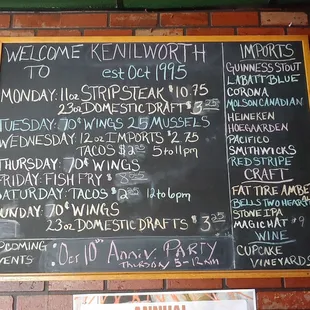 WELCOME KENILWORTH
TO est Oct 1995
MONDAY: 11oz STRIPSTEAK $10.75
23oz DOMESTIC DRAFT $3.25
TUESDAY: 70¢ WINGS 25 MUSSELS
WEDNESDAY: 12oz IMPORTS $2.75
TACOS $2 5 to 11pm
THURSDAY: 70¢ WINGS
FRIDAY: FISH FRY
SATURDAY: TACOS $2 12 to 6pm
SUNDAY: 70¢ WINGS
23oz DOMESTIC DRAFTS $3.25
UPCOMING
EVENTS
"Oct 10th Anniv. PARTY
THURSDAY 5-12AM
IMPORTS
GUINNESS STOUT
LABATT BLUE
CORONA
MOLSON CANADIAN
HEINEKEN
HOEGAARDEN
PACIFICO
SMITHWICKS
RED STRIPE
CRAFT
FAT TIRE AMBE
BELLS TWO HEAR
STONE IPA
MAGIC HAT #9
WINE
CUPCAKE
VINEYARDS
ANNUAL